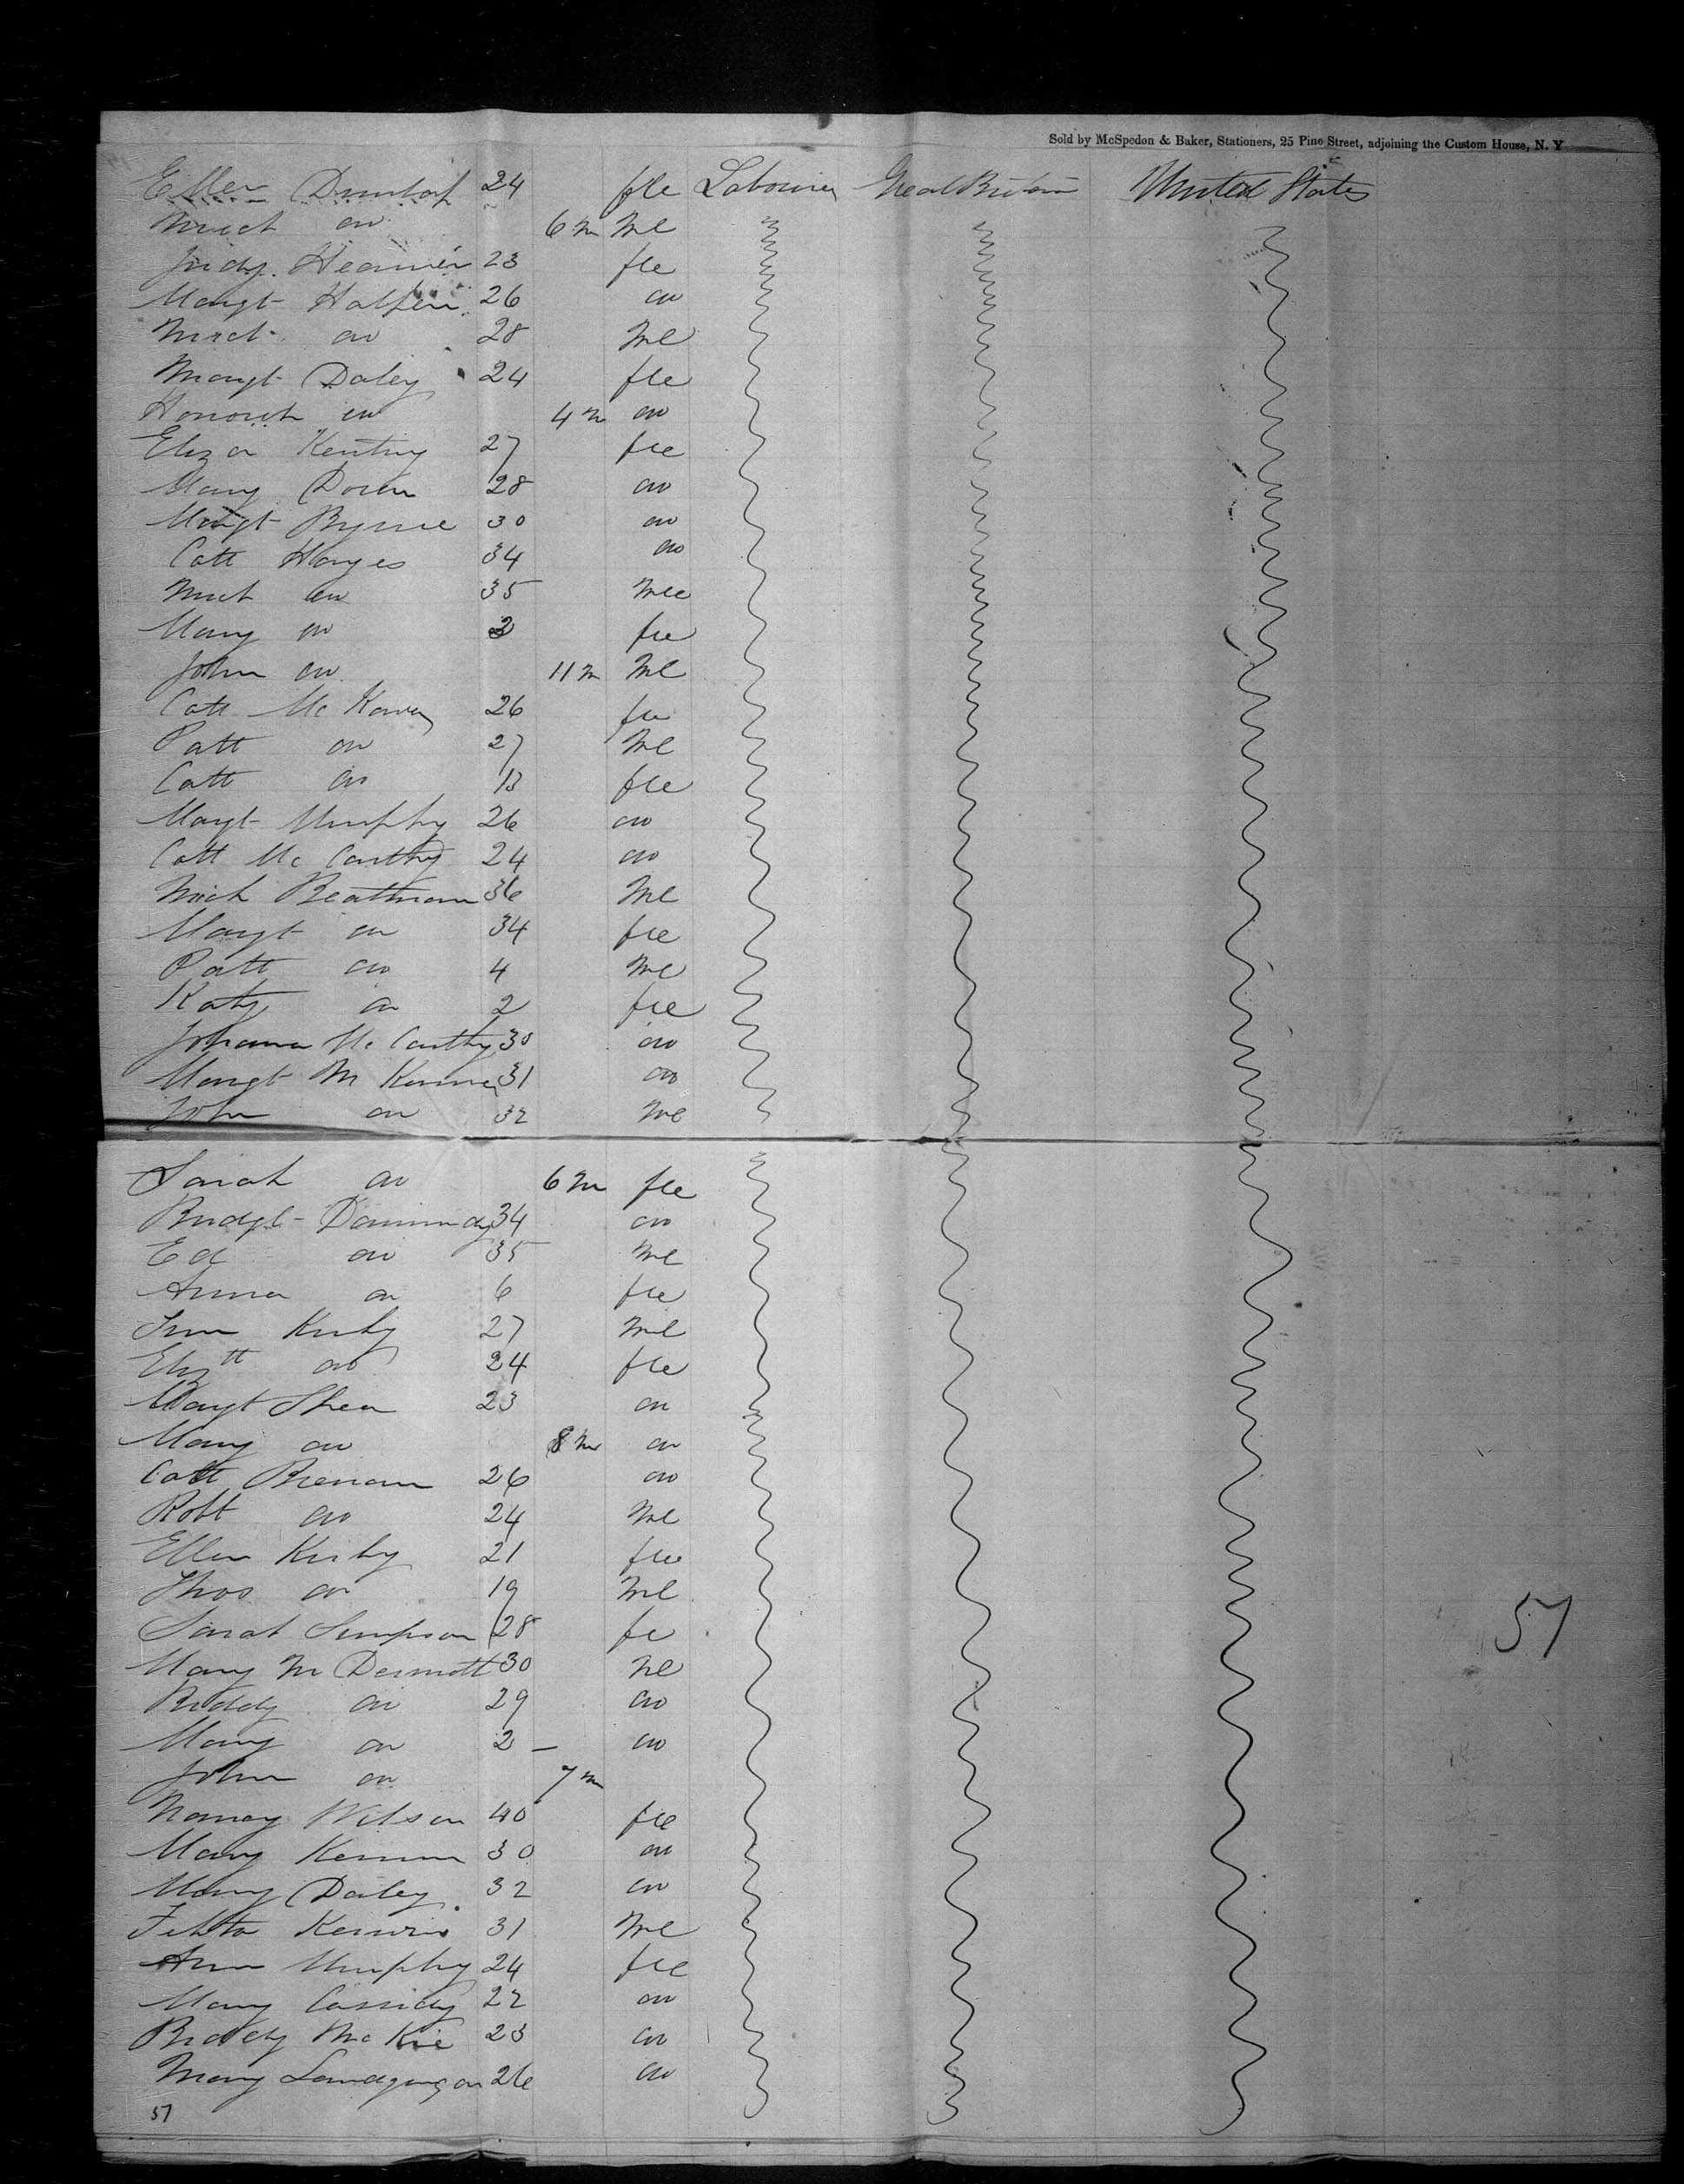 Sold by McSpedon & Baker, Stationers, 25 Pine Street, adjoining the Custom House, N. Y
Ellen Dunlop 24 fle Labourer Great Britain United States
Mich do 6 m Me
Judy 23 fle
Margt Halpen 26 do
Mich do 28 Me
Margt Daley 24 fle
Honorah do 4 m do
Eliza Keating 27 fle
Mary Doran 28 do
Margt Byrne 30 do
Cath Hayes 34 do
Mich do 35 Me
Mary do 2 fle
John do 11 m Me
Cath Mc 26 fle
Patt do 27 Me
Cath do 13 fle
Margt Murphy 26 do
Cath Mc Carthy 24 do
Mich 36 Me
Margt do 34 fle
Patt do 4 Me
Katy do 2 fle
Johanna Mc Carthy 30 do
Margt M Kenna 31 do
John do 32 Me
Sarah do 6 m fle
Bridgt 34 do
Ed do 35 Me
Anna do 6 fle
Kirby 27 Me
Elizth do 24 fle
Margt Shea 23 do
Mary do 8 m do
Cath Brenan 26 do
Robt do 24 Me
Ellen Kirby 21 fle
Thos do 19 Me
Sarah Simpson 28 fe
Mary M Dermott 30 Me
Biddy do 29 do
Mary do 2 — do
John do 7 m
Nancy Wilson 40 fle
Mary 30 do
Mary Daley 32 do
31 Me
Ann Murphy 24 fle
Mary Cassidy 22 do
Biddy Mc Kie 23 do
Mary 26 do
57
57